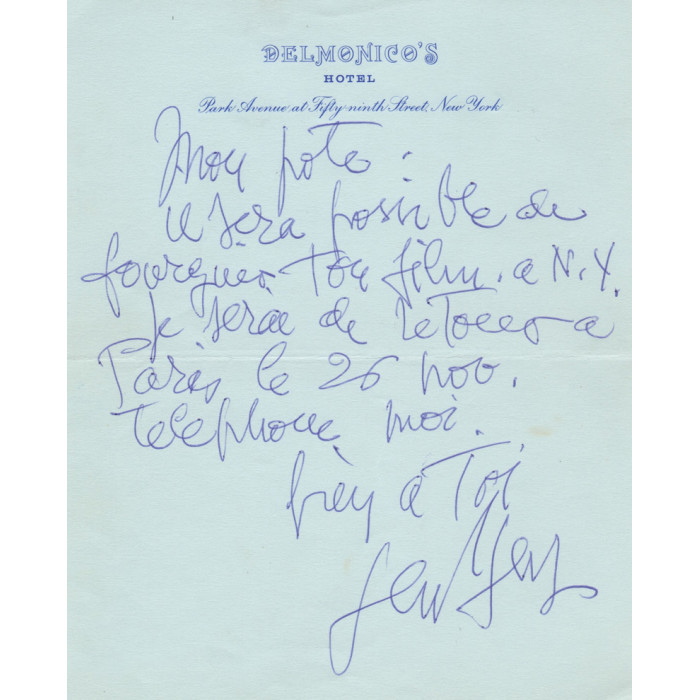 DELMONICO'S
HOTEL
Park Avenue at Fifty-ninth Street, New York
Mon pote :
il sera possible de
fourguer ton film. a N.Y.
je serai de retour a
Paris le 26 nov.
telephone moi.
bien a Toi